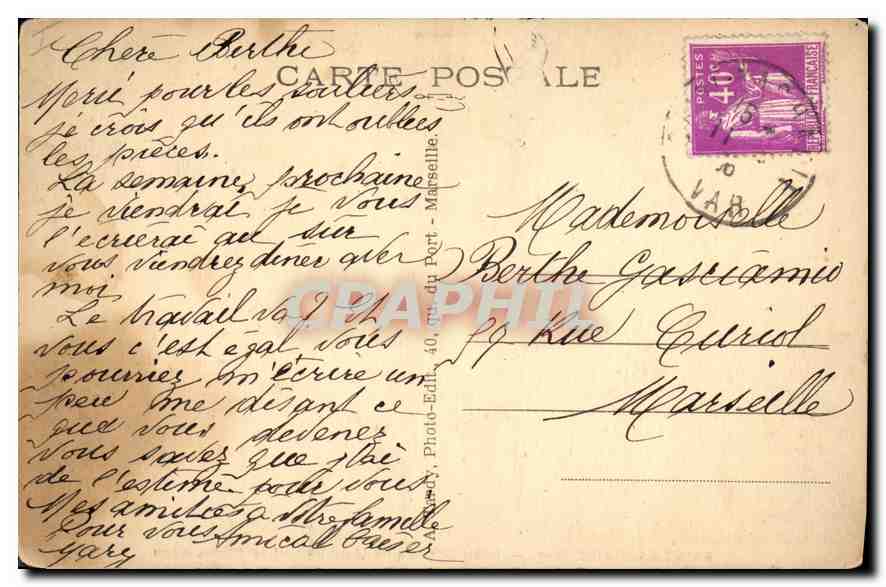 Cheré Berthe
CARTE POSTALE
Merci pour les souliers
je crois qu'ils ont oublies
les pièces.
La semaine prochaine
je viendrai je vous
l'écriérai au sûr
vous viendrez diner avec
moi
Le travail va ? Et
vous c'est egal vous
pourriez m'écrire un
peu me disant ce
que vous devenez
vous savez que j'ai
de l'estime pour vous
Mes amities a votre famille
Pour vous Amical baiser
Gary
A. Tardy, Photo-Edit., 40, qu. du Port - Marseille.
POSTES
40c
REPUBLIQUE FRANÇAISE
VAR
Mademoiselle
Berthe Gasciamio
59 Rue Curiol
Marseille
CPAPHIL